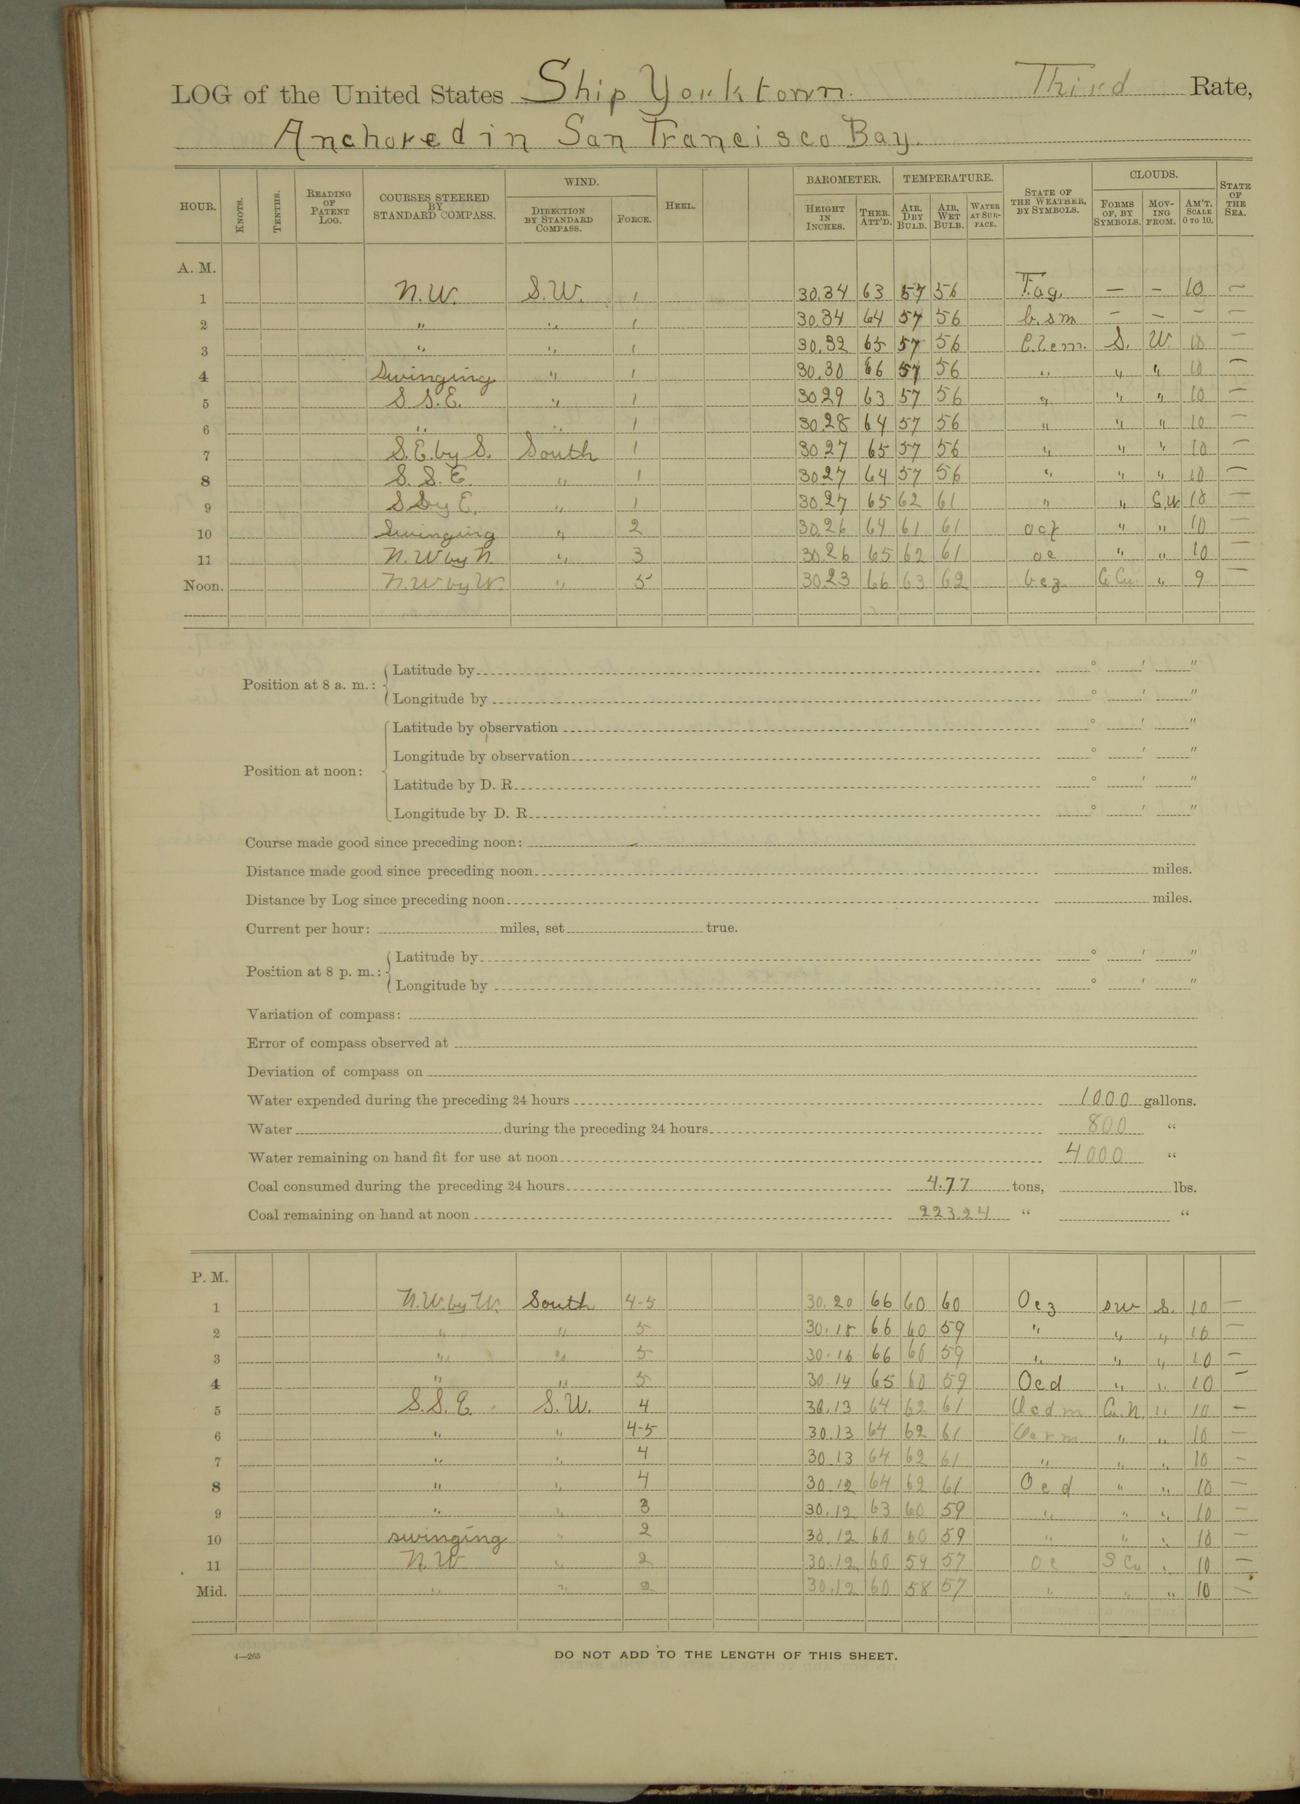 LOG of the United States Ship Yorktown. Third Rate,
Anchored in San Francisco Bay.
HOUR. KNOTS. TENTHS. READING OF PATENT LOG. COURSES STEERED BY STANDARD COMPASS. WIND. DIRECTION BY STANDARD COMPASS. FORCE. HEEL. BAROMETER. HEIGHT IN INCHES. THER. ATT'D. TEMPERATURE. AIR, DRY BULB. AIR, WET BULB. WATER AT SURFACE. STATE OF THE WEATHER, BY SYMBOLS. CLOUDS. FORMS OF, BY SYMBOLS. MOVING FROM. AM'T. SCALE 0 TO 10. STATE OF THE SEA.
A. M.
1 N.W. S.W. 1 30.34 63 57 56 Fog. — – 10 —
2 " " 1 30.34 64 57 56 b.s.m — — — —
3 " " 1 30.32 65 57 56 S. W. 10 —
4 Swinging " 1 30.30 66 57 56 " " " 10 —
5 S S.E. " 1 30.29 63 57 56 " " " 10 —
6 " " 1 30.28 64 57 56 " " " 10 —
7 S.E. by S. South 1 30.27 65 57 56 " " " 10 —
8 S. S. E. " 1 30.27 64 57 56 " " " 10 —
9 S by E. " 1 30.27 65 62 61 " " S.W 10 —
10 Swinging " 2 30.26 64 61 61 ocz " " 10 —
11 N. W by N. " 3 30.26 65 62 61 oc " " 10 —
Noon. N. W by W. " 5 30.23 66 63 62 bcz Ci Cu. " 9 —
Position at 8 a. m.: Latitude by ° ′ ″
Longitude by ° ′ ″
Position at noon: Latitude by observation ° ′ ″
Longitude by observation ° ′ ″
Latitude by D. R. ° ′ ″
Longitude by D. R. ° ′ ″
Course made good since preceding noon:
Distance made good since preceding noon miles.
Distance by Log since preceding noon miles.
Current per hour: miles, set true.
Position at 8 p. m.: Latitude by ° ′ ″
Longitude by ° ′ ″
Variation of compass:
Error of compass observed at
Deviation of compass on
Water expended during the preceding 24 hours 1000 gallons.
Water during the preceding 24 hours 800 "
Water remaining on hand fit for use at noon 4000 "
Coal consumed during the preceding 24 hours 4.77 tons, lbs.
Coal remaining on hand at noon 223.24 " "
P. M.
1 N.W. by W. South 4-5 30.20 66 60 60 Ocz SW S. 10 —
2 " " 5 30.18 66 60 59 " " " 10 —
3 " " 5 30.16 66 60 59 " " " 10 —
4 " " 5 30.14 65 60 59 Ocd " " 10 —
5 S.S.E. S.W. 4 30.13 64 62 61 Ocdm Cu.N. " 10 —
6 " " 4-5 30.13 64 62 61 Ocrm " " 10 —
7 " " 4 30.13 64 62 61 " " " 10 —
8 " " 4 30.12 64 62 61 Ocd " " 10 —
9 " " 3 30.12 63 60 59 " " " 10 —
10 swinging " 2 30.12 60 60 59 " " " 10 —
11 N.W " 2 30.12 60 59 57 Oc S Cu " 10 —
Mid. " " 2 30.12 60 58 57 " " " 10 —
4—265
DO NOT ADD TO THE LENGTH OF THIS SHEET.